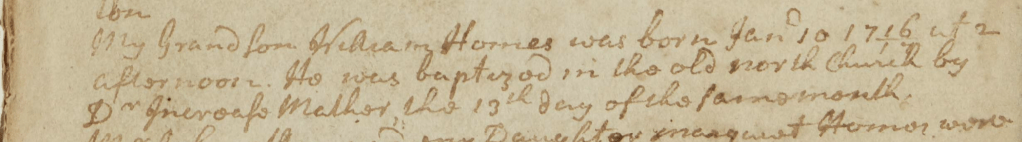 son
My Grandson William Homes was born Jan^r 10 1716/17 at 2
afternoon. He was baptized in the old north Church by
D^r Increase Mather, the 13^th day of the same month.
my Daughter margaret Homes were